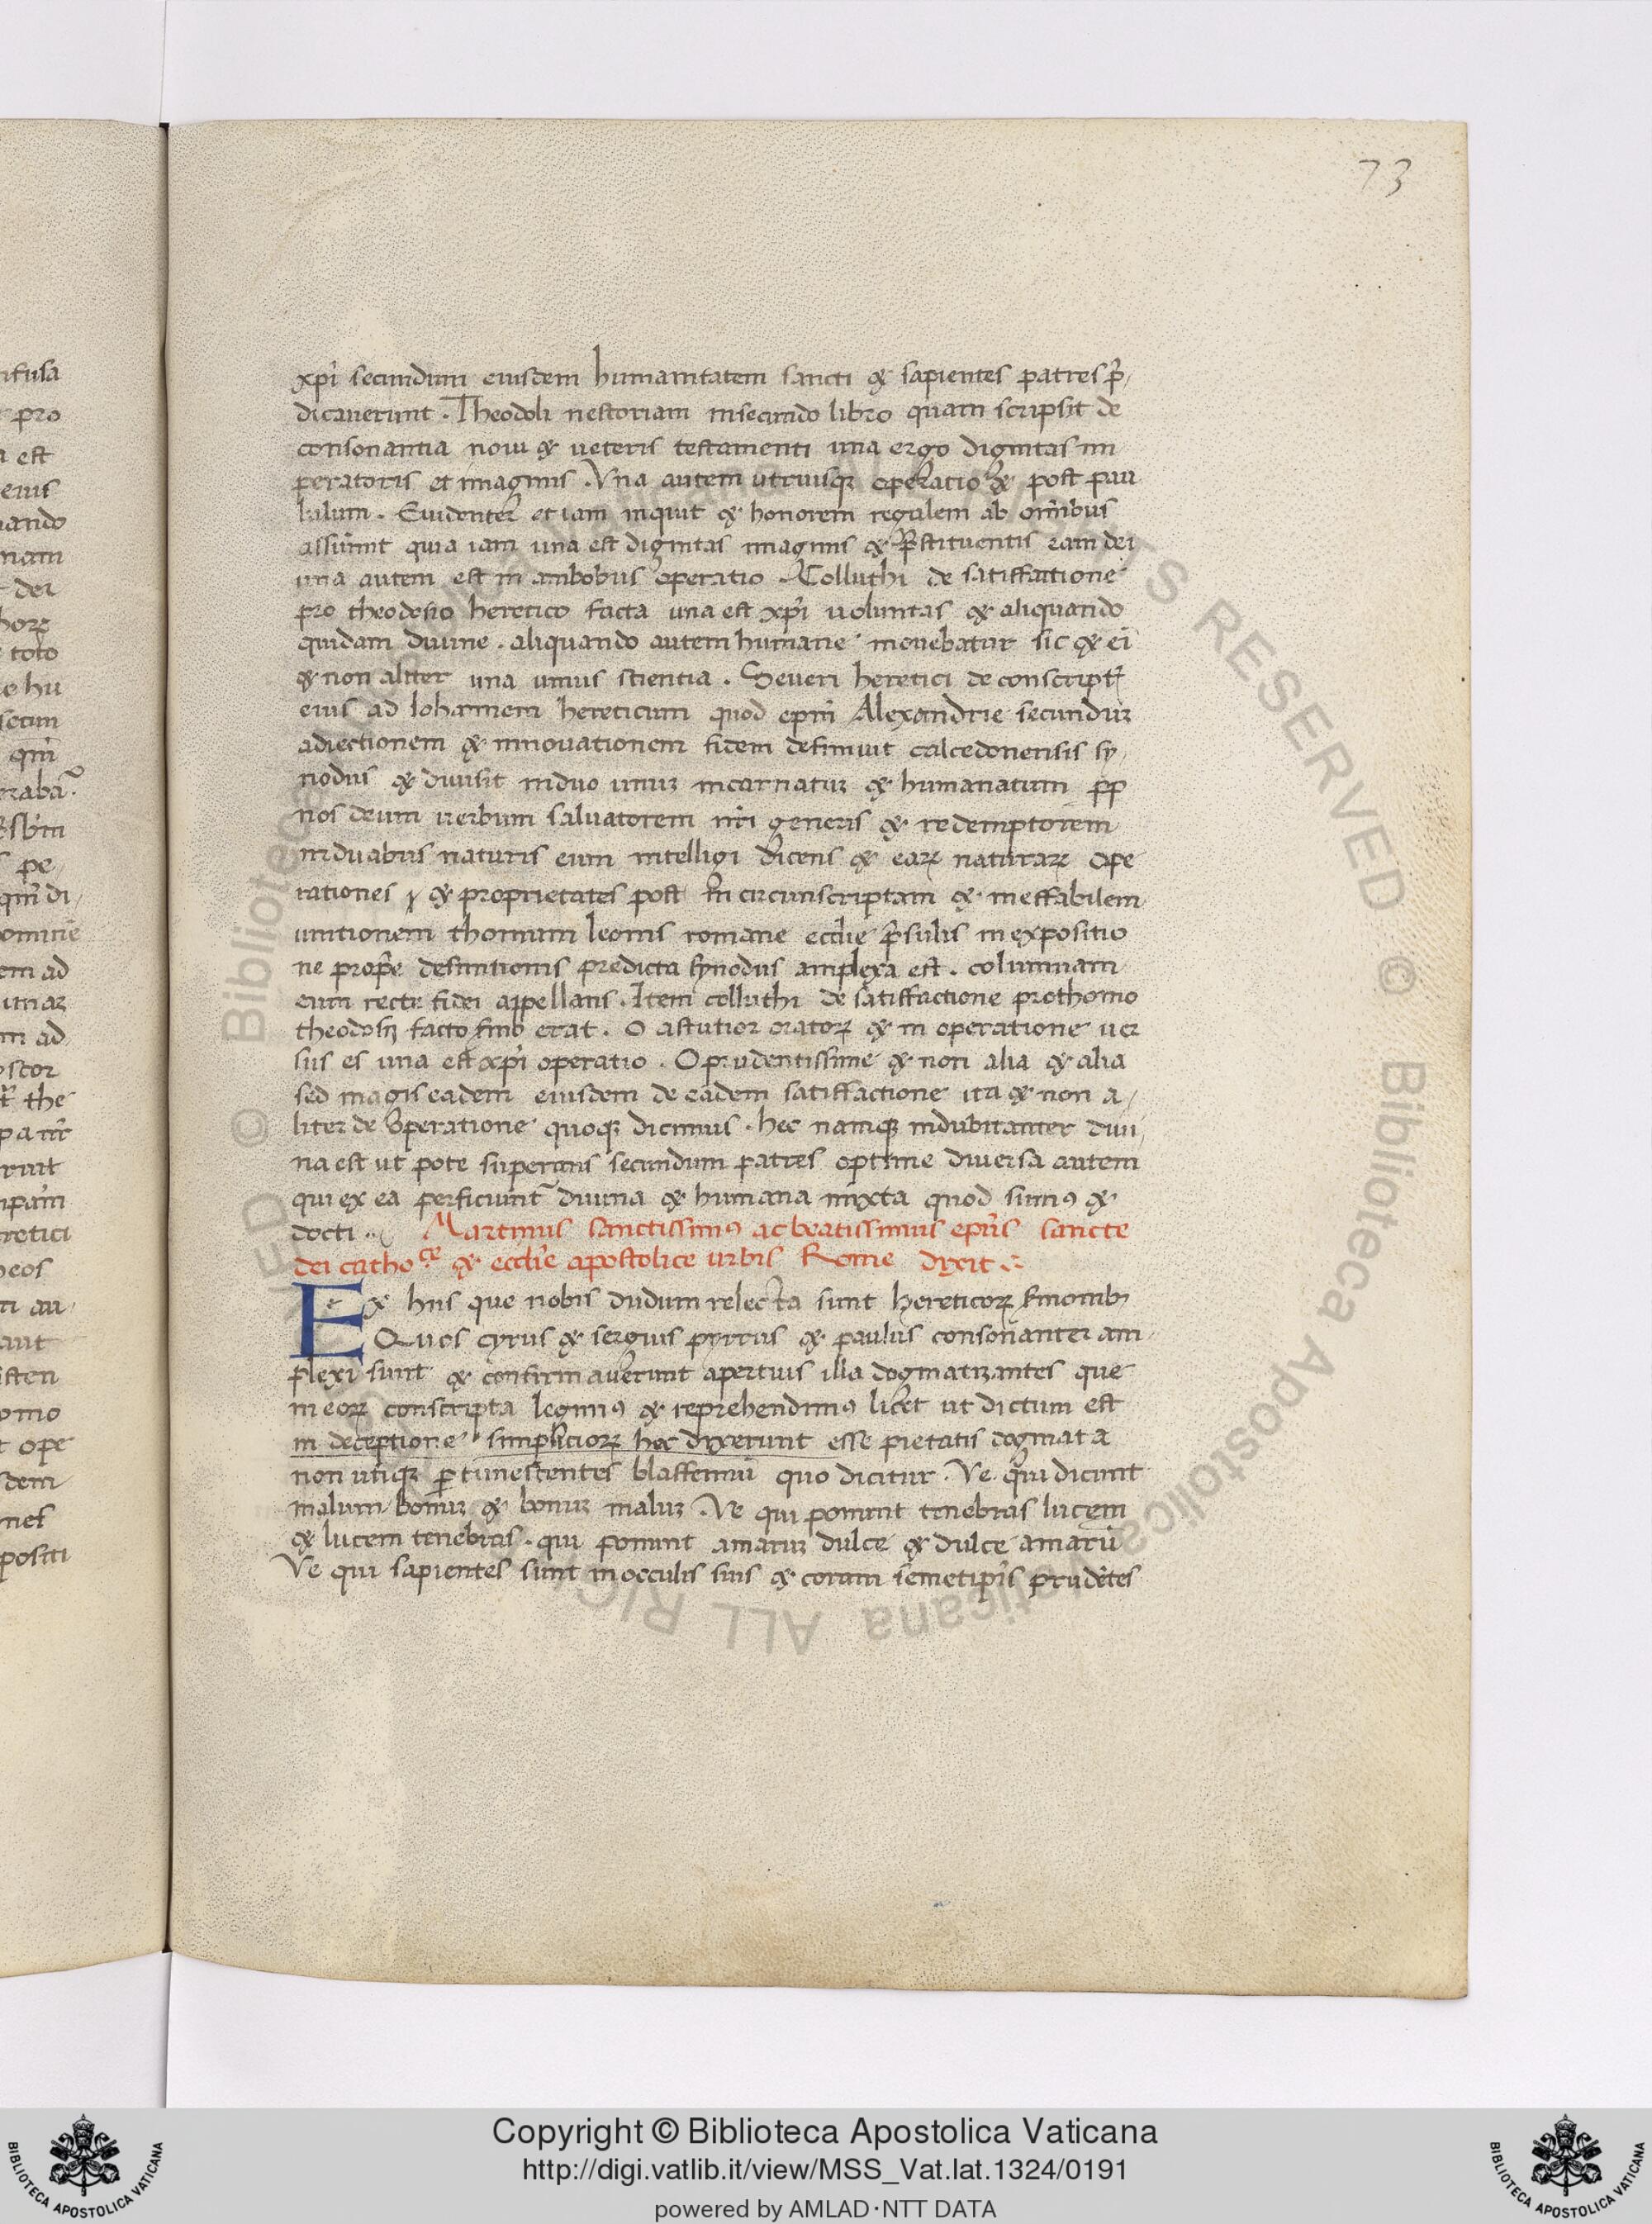 73
xpi secundum eiusdem humanitatem sancti & sapientes patres p̃
dicaverunt . Theodoli nestoriani insecundo libro quam scripsit de
consonantia novi & ueteris testamenti una ergo dignitas im
peratoris et imaginis . Vna autem utriusq operatio & post pau
lulum . Euidenter et iam inquit & honorem regalem ab omibus
assumit quia iam una est dignitas imaginis & p̃stituentis eam dei
una autem est in ambobus operatio . Colluthi de satiffatione
pro theodosio heretico facta una est xpi uoluntas & aliquando
quidam diuine . aliquando autem humane mouebatur sic & ei
& non aliter una unius scientia . Seueri heretici de conscript̃
eius ad Iohannem hereticum quod epm Alexandrie secunduz
adiectionem & innouationem fidem definiuit calcedonensis sy
nodus & diuisit induo unuz incarnatuz & humanatum pp
nos deum uerbum saluatorem nri generis & redemptorem
induabus naturis eum intelligi dicens & eaꝝ naturaꝝ ope
rationes & proprietates post in circunscriptam & ineffabilem
unitionem thomum leonis romane ecclie p̃sulis in expositio
ne prope definitionis predicta synodus amplexa est . columnam
eum recte fidei appellans . Item colluthi de satiffactione prothomo
theodosij facto erat . O astutior oratoꝝ & in operatione uer
sus es una est xpi operatio . O prudentissime & non alia & alia
sed magis eadem eiusdem de eadem satiffactione ita & non a
liter de operatione quoq dicimus . hec namq indubitanter diui
na est ut pote superans secundum patres optime diuersa autem
qui ex ea perficiunt̃ diuina & humana mixta quod simꝰ &
docti .. Martinus sanctissimꝰ ac beatissimus ep̃us sancte
dei catho ce & ecclie apostolice urbis Rome dixit
Ex hiis que nobis dudum relecta sunt hereticoꝝ smonibꝫ
Quos cyrus & sergius pyrrus & paulus consonanter am
plexi sunt & confirmauerunt apertius illa dogmatizantes que
in eoꝝ conscripta legimꝰ & reprehendimꝰ licet ut dictum est
in deceptione simplicioꝝ hec dixerunt esse pietatis dogmata
non utiq ptimescentes blaffemiũ quo dicitur . Ve qui dicunt
malum bonuz & bonuz maluz . Ve qui ponunt tenebras lucem
& lucem tenebras . qui ponunt amaruz dulce & dulce amarũ
Ve qui sapientes sunt in occulis suis & coram semetip̃is prudẽtes
Copyright © Biblioteca Apostolica Vaticana
http://digi.vatlib.it/view/MSS_Vat.lat.1324/0191
powered by AMLAD·NTT DATA